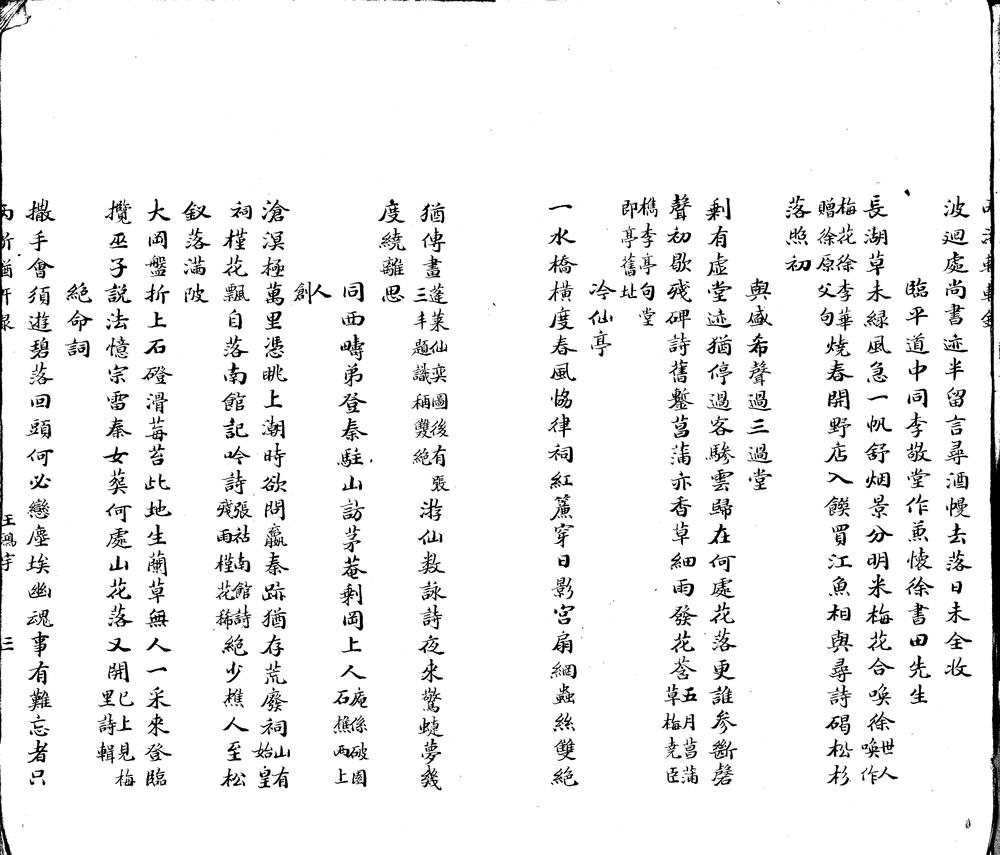 波迴處尚書迹半留言尋酒幔去落日未全收
臨平道中同李敬堂作兼懷徐書田先生
長湖草未緑風急一帆舒烟景分明米梅花合喚徐世人喚作
梅花徐李華
贈徐原父句燒春開野店入饌買江魚相與尋詩碣松杉
落照初
與盛希聲過三過堂
剩有虚堂迹猶停過客驂雲歸在何處花落更誰參斷磬
聲初歇殘碑詩舊鑿菖蒲亦香草細雨發花荅五月菖蒲
草梅堯臣
樵李亭句堂
即亭舊址
冷仙亭
一水橋横度春風恊律祠紅簾穿日影宫扇網蟲絲雙絶
猶傳畫蓬萊仙奕圖後有張
三丰題識稱雙絶游仙数詠詩夜來驚蜨夢幾
度繞離思
同西疇弟登秦駐山訪茅菴剩岡上人庵係破團
石樵兩上
人
創
滄溟極萬里憑眺上潮時欲問嬴秦跡猶存荒廢祠山有
始皇
祠槿花飄自落南館記吟詩張祜南館詩
殘雨槿花稀絶少樵人至松
釵落滿陂
大岡盤折上石磴滑莓苔此地生蘭草無人一采來登臨
攬巫子説法憶宗雷秦女葵何處山花落又開已上見梅
里詩輯
絶命詞
撒手會須遊碧落回頭何必戀塵埃幽魂事有難忘者只
王鴻宇
三